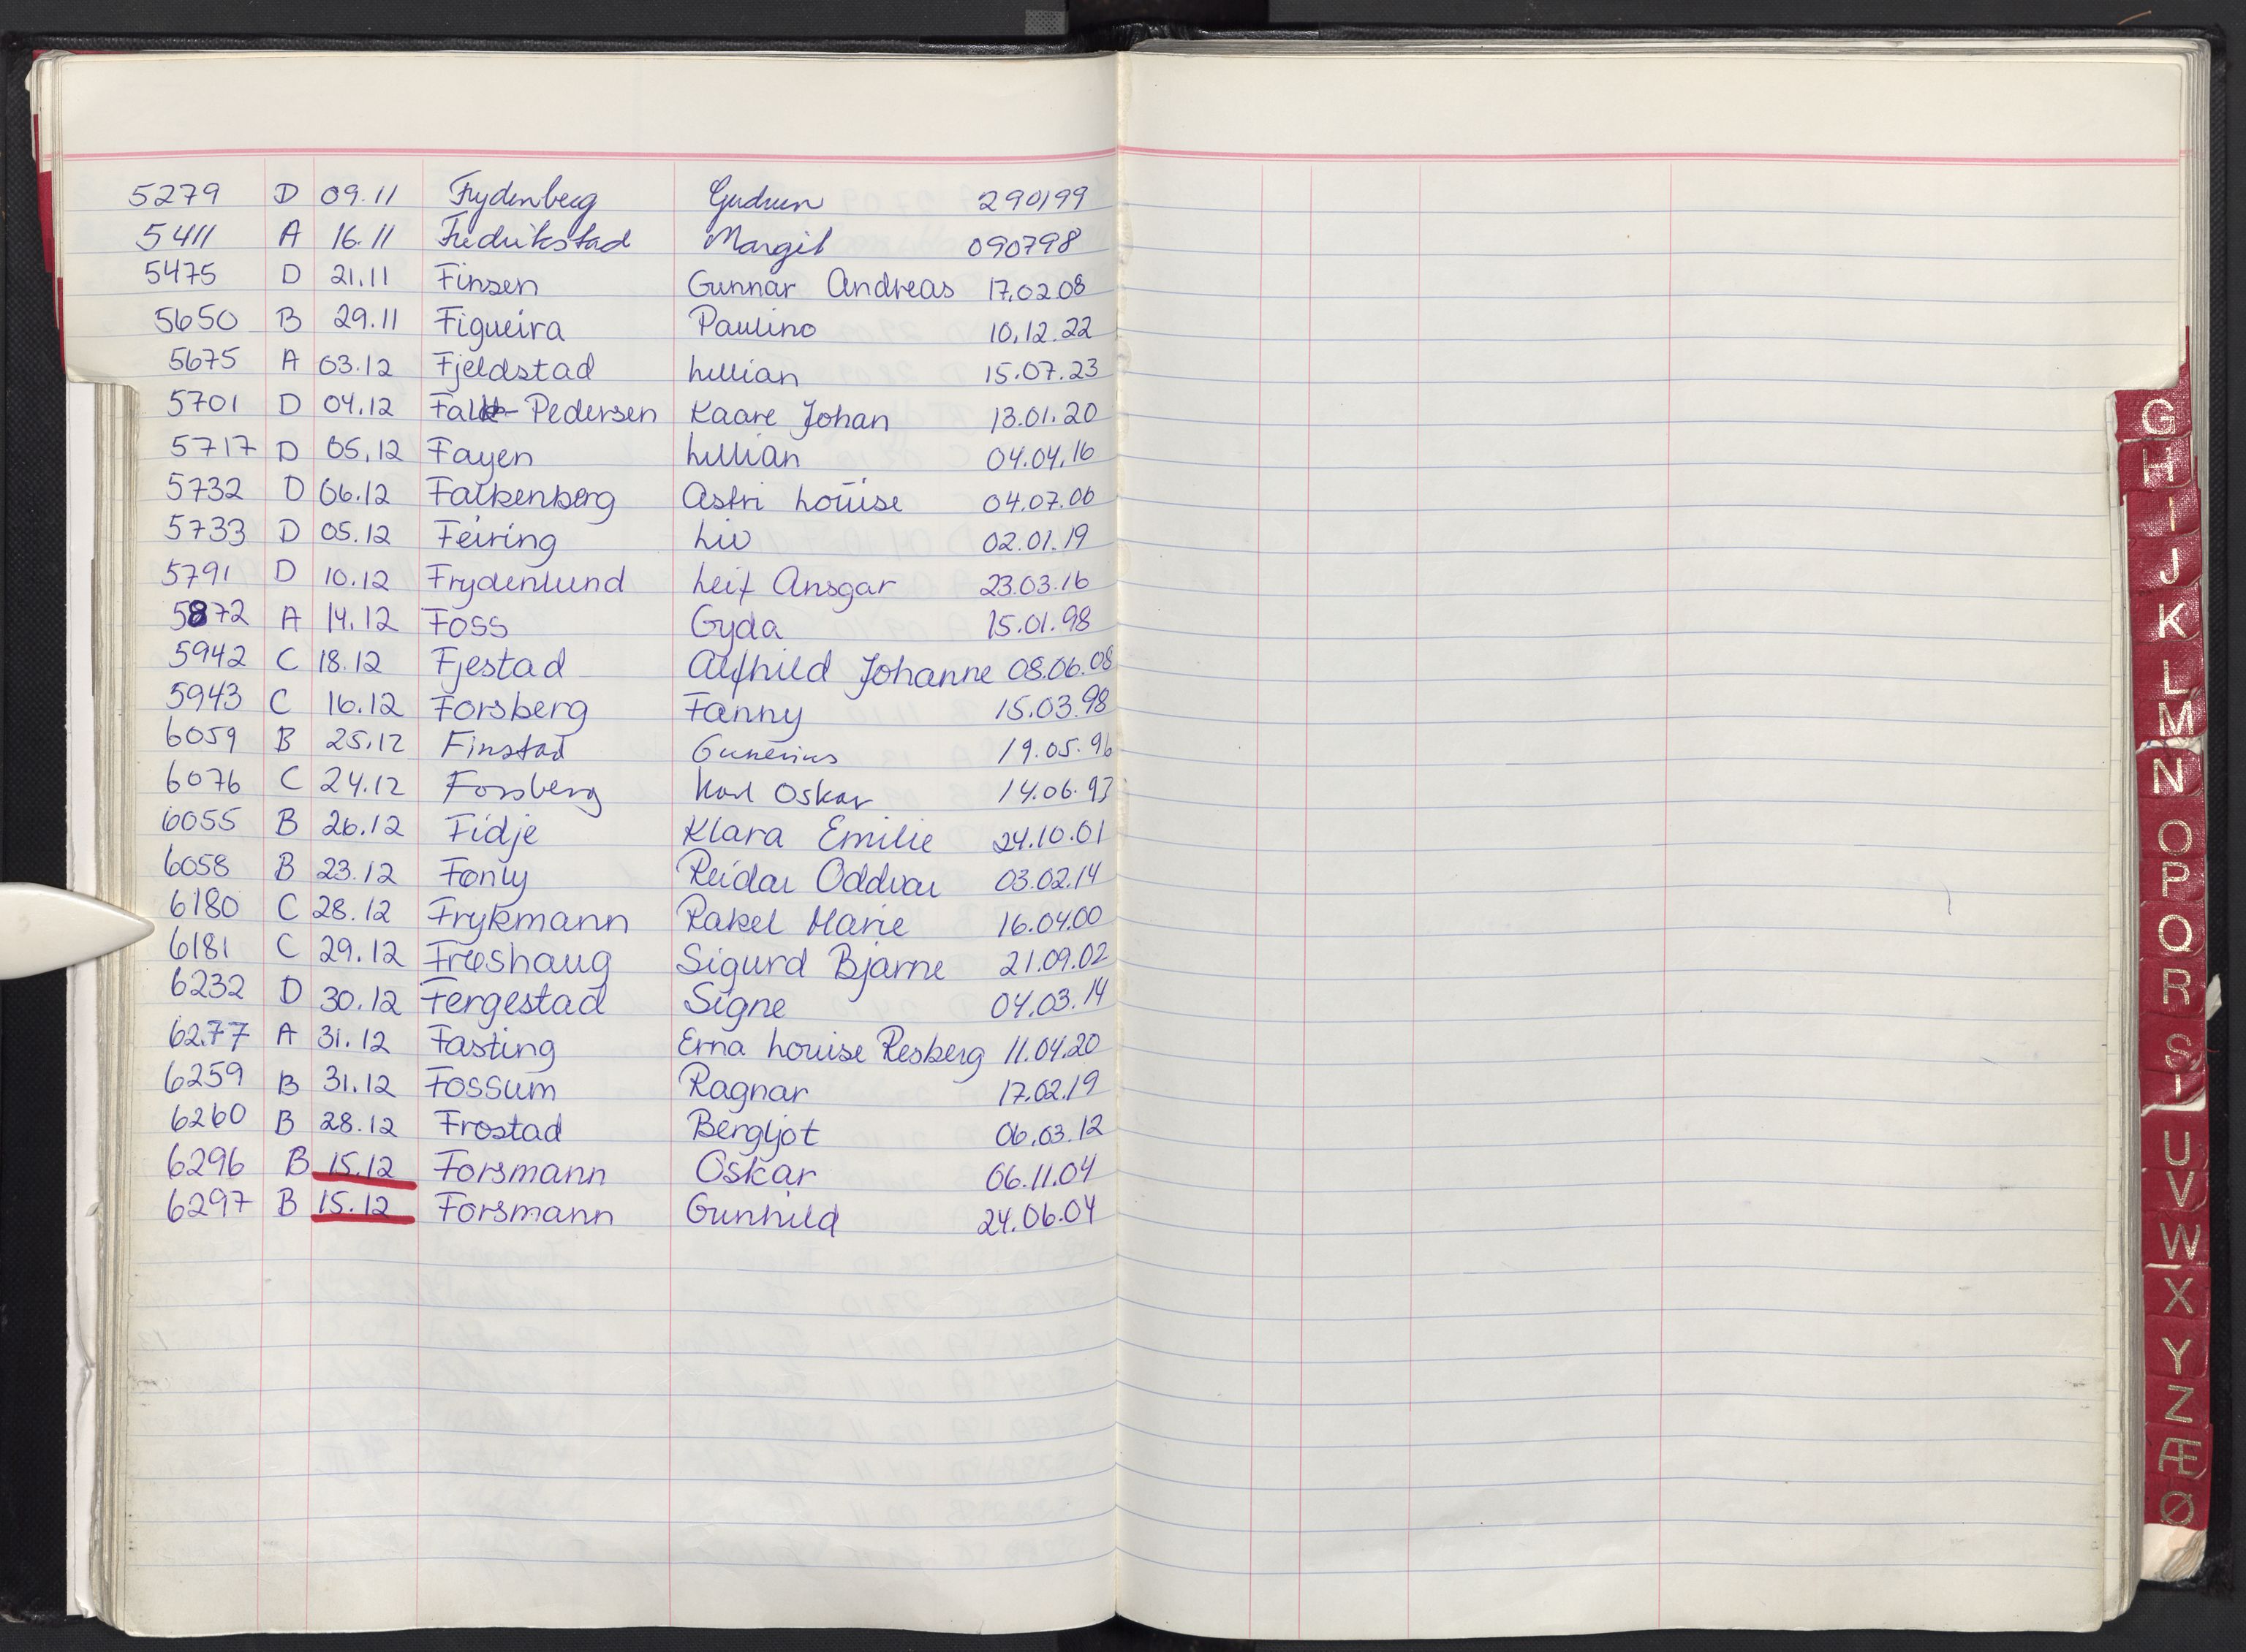 5279 D 09.11 Frydenberg Gudrun 290199
5411 A 16.11 Fredrikstad Margit 090798
5475 D 21.11 Finsen Gunnar Andreas 17.02.08
5650 B 29.11 Figueira Paulino 10.12.22
5675 A 03.12 Fjeldstad Lillian 15.07.23
5701 D 04.12 Falk- Pedersen Kaare Johan 13.01.20
5717 D 05.12 Fayen Lillian 04.04.16
5732 D 06.12 Falkenberg Astri Louise 04.07.06
5733 D 05.12 Feiring Liv 02.01.19
5791 D 10.12 Frydenlund Leif Ansgar 23.03.16
5872 A 14.12 Foss Gyda 15.01.98
5942 C 18.12 Fjestad Alfhild Johanne 08.06.08
5943 C 16.12 Forsberg Fanny 15.03.98
6059 B 25.12 Finstad Gunerius 19.05.96
6076 C 24.12 Forsberg Karl Oskar 14.06.93
6055 B 26.12 Fidje Klara Emilie 24.10.01
6058 B 23.12 Reidar Oddvar 03.02.14
6180 C 28.12 Frykmann Rakel Marie 16.04.00
6181 C 29.12 Frøshaug Sigurd Bjarne 21.09.02
6232 D 30.12 Fergestad Signe 04.03.14
6277 A 31.12 Fasting Erna Louise Resberg 11.04.20
6259 B 31.12 Fossum Ragnar 17.02.19
6260 B 28.12 Frostad Bergljot 06.03.12
6296 B 15.12 Forsmann Oskar 06.11.04
6297 B 15.12 Forsmann Gunhild 24.06.04
G
H
I
J
K
L
M
N
O
P
Q
R
S
U
V
W
X
Y
Z
Æ
Ø